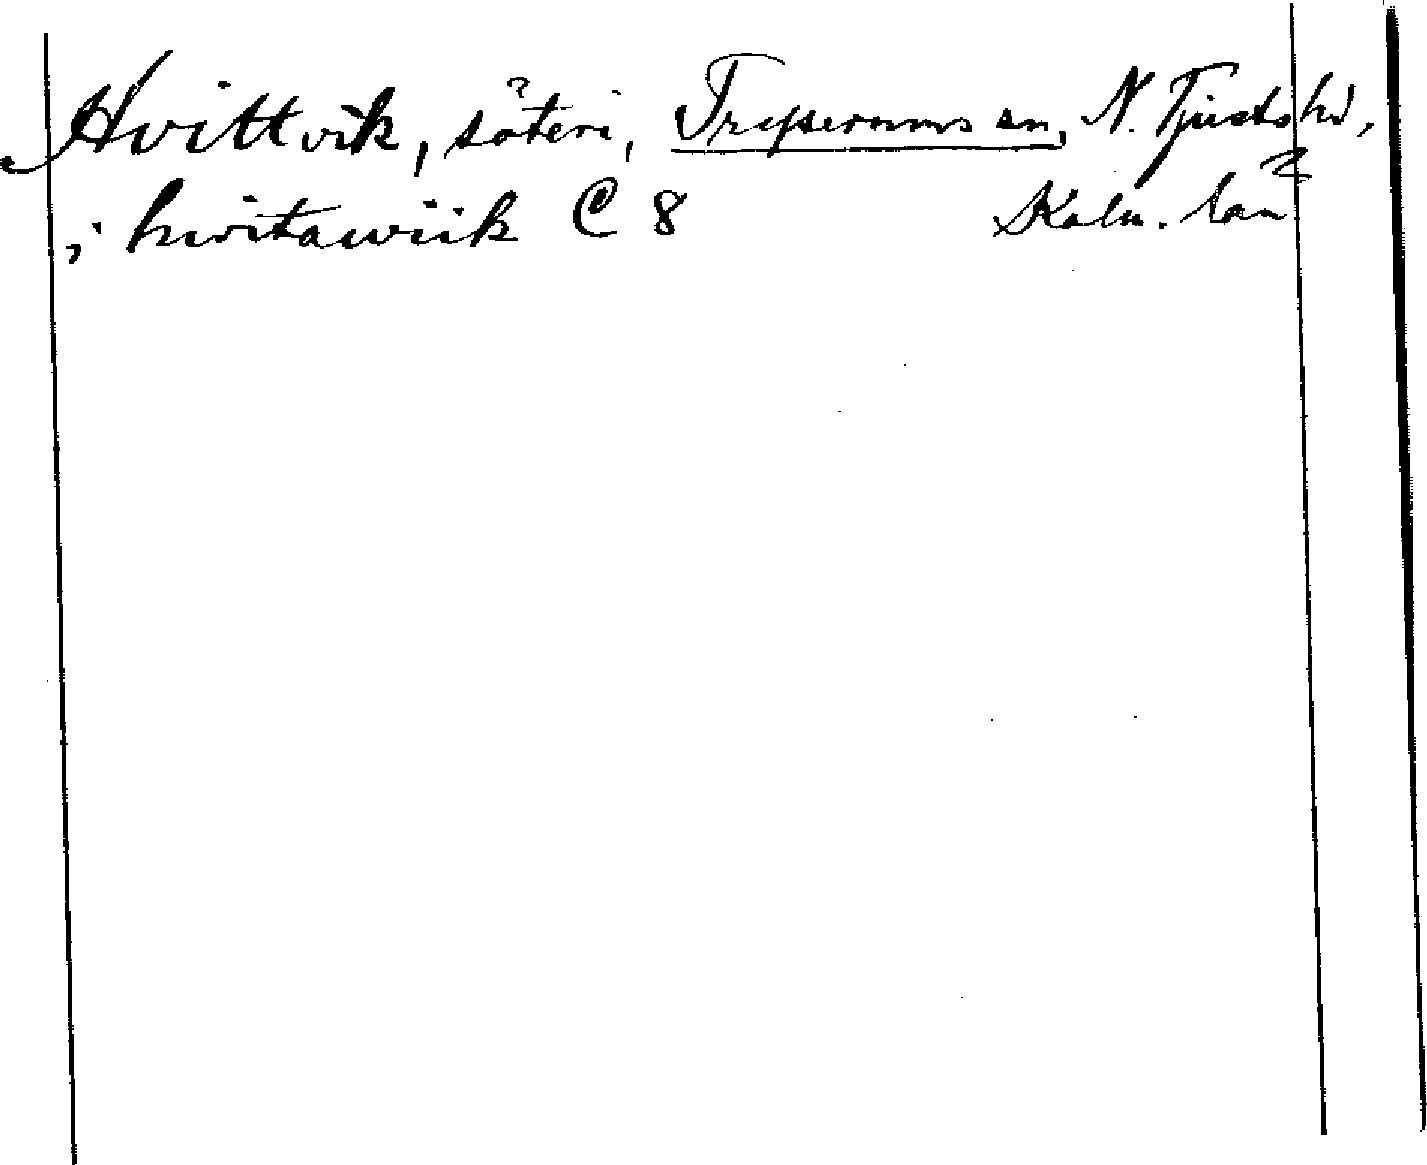 Hvittvik, säteri, Tryserums sn, N. Tjusts hd,
i hwitawiik C 8 Kalm. län